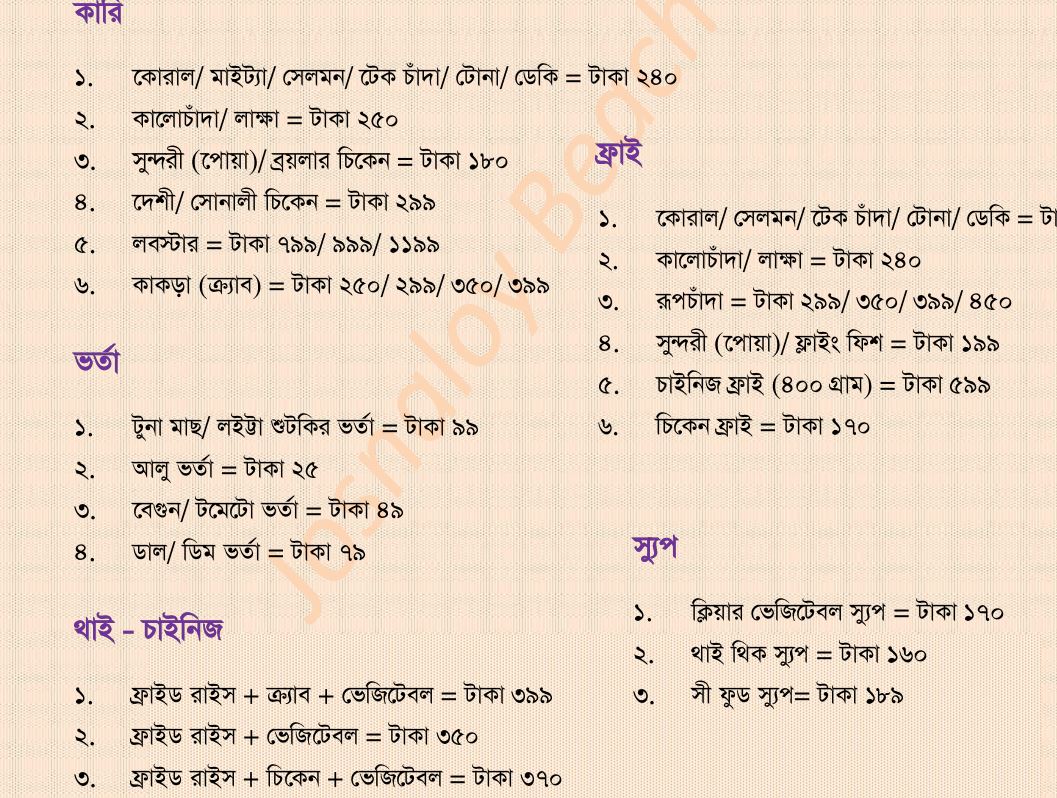 কারি
১. কোরাল/ মাইট্যা/ সেলমন/ টেক চাঁদা/ টোনা/ ডেকি = টাকা ২৪০
২. কালোচাঁদা/ লাক্ষা = টাকা ২৫০
৩. সুন্দরী (পোয়া)/ ব্রয়লার চিকেন = টাকা ১৮০
৪. দেশী/ সোনালী চিকেন = টাকা ২৯৯
৫. লবস্টার = টাকা ৭৯৯/ ৯৯৯/ ১১৯৯
৬. কাকড়া (ক্র্যাব) = টাকা ২৫০/ ২৯৯/ ৩৫০/ ৩৯৯
ভর্তা
১. টুনা মাছ/ লইট্টা শুটকির ভর্তা = টাকা ৯৯
২. আলু ভর্তা = টাকা ২৫
৩. বেগুন/ টমেটো ভর্তা = টাকা ৪৯
৪. ডাল/ ডিম ভর্তা = টাকা ৭৯
থাই - চাইনিজ
১. ফ্রাইড রাইস + ক্র্যাব + ভেজিটেবল = টাকা ৩৯৯
২. ফ্রাইড রাইস + ভেজিটেবল = টাকা ৩৫০
৩. ফ্রাইড রাইস + চিকেন + ভেজিটেবল = টাকা ৩৭০
ফ্রাই
১. কোরাল/ সেলমন/ টেক চাঁদা/ টোনা/ ডেকি =
২. কালোচাঁদা/ লাক্ষা = টাকা ২৪০
৩. রূপচাঁদা = টাকা ২৯৯/ ৩৫০/ ৩৯৯/ ৪৫০
৪. সুন্দরী (পোয়া)/ ফ্লাইং ফিশ = টাকা ১৯৯
৫. চাইনিজ ফ্রাই (৪০০ গ্রাম) = টাকা ৫৯৯
৬. চিকেন ফ্রাই = টাকা ১৭০
স্যুপ
১. ক্লিয়ার ভেজিটেবল স্যুপ = টাকা ১৭০
২. থাই থিক স্যুপ = টাকা ১৬০
৩. সী ফুড স্যুপ= টাকা ১৮৯
Josnaloy Beach